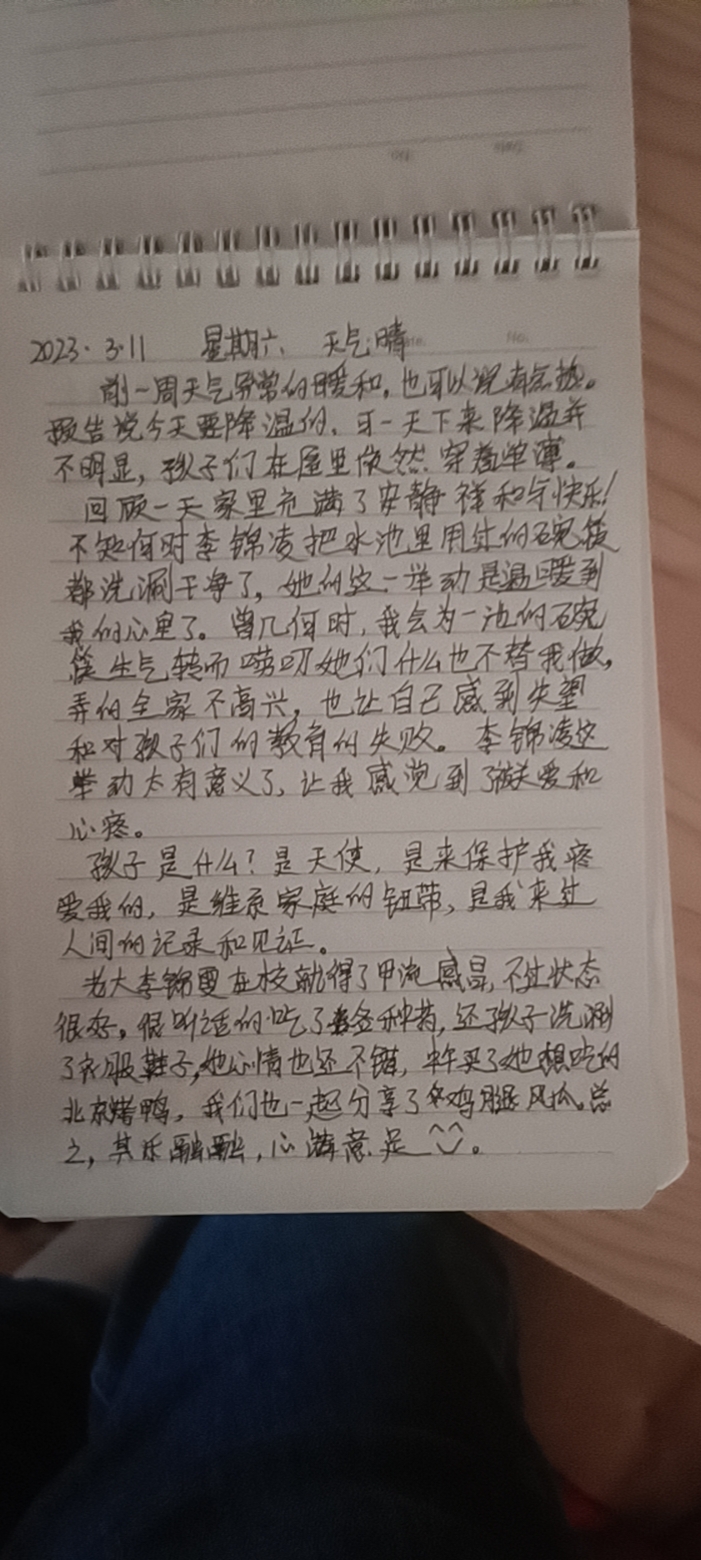 2023.3.11 星期六 天气晴
前一周天气异常的暖和,也可以说有点热。
预告说今天要降温的,可一天下来降温并
不明显,孩子们在屋里依然穿着单薄。
回顾一天家里充满了安静祥和与快乐!
不知何时李锦凌把水池里用过的碗筷
都洗涮干净了,她的这一举动是温暖到
我的心里了。曾几何时,我会为一池的碗
筷生气转而唠叨她们什么也不替我做,
弄的全家不高兴,也让自己感到失望
和对孩子们的教育的失败。李锦凌这
举动太有意义了,让我感觉到了被关爱和
心疼。
孩子是什么?是天使,是来保护我疼
爱我的,是维系家庭的钮带,是我来过
人间的记录和见证。
老大李锦雯在校就得了甲流感冒,不过状态
很好。很听话的吃了各种药,还孩子洗涮
了衣服鞋子,她心情也还不错,中午买了她想吃的
北京烤鸭,我们也一起分享了鸡腿凤爪。总
之,其乐融融,心满意足^^。